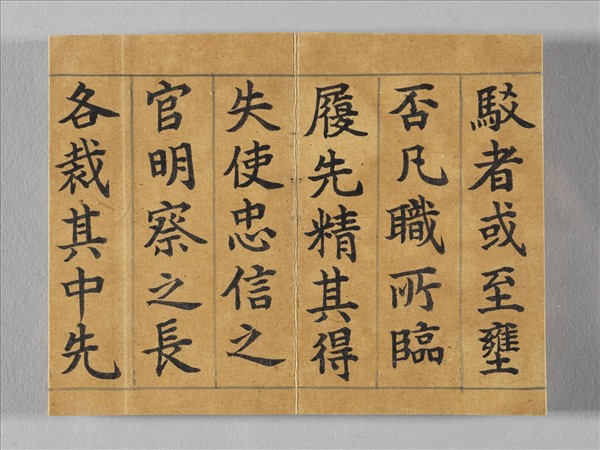 駁者或至壅
否凡職所臨
履先精其得
失使忠信之
官明察之長
各裁其中先